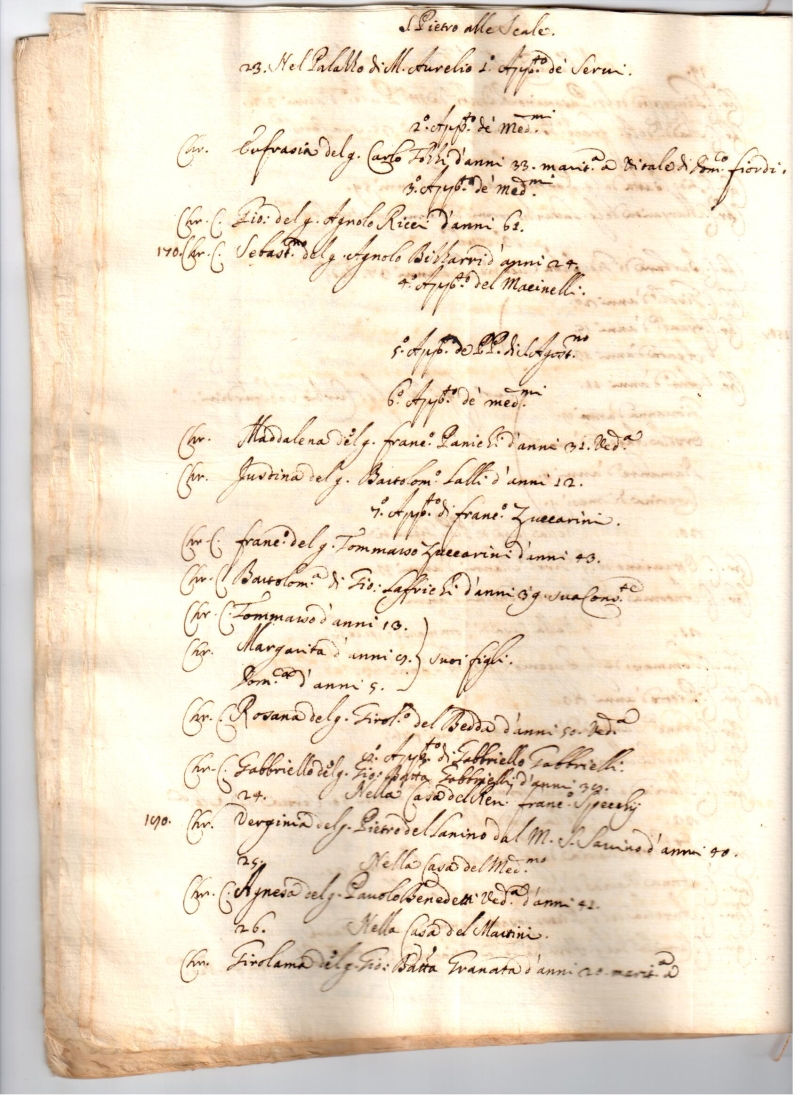 S. Pietro alle Scale.
23. Nel Palazzo di M. Aurelio 1.º App.to de' Servi.
2.º App.to de' Med.mi
Chr. Eufrasia del q. Carlo Tozzi d'anni 33. marit.a a Vitale di Dom.co fiordi.
3.º App.to de' Med.mi
Chr. C. Gio: del q. Agnolo Ricci d'anni 61.
170. Chr. C. Sebast.no del q. Agnolo Bizzarri d'anni 24.
4.º App.to del Macinelli.
5.º App.to de PP. di S. Agost.no
6.º App.to de' med.mi
Chr. Maddalena del q. franc.º Panichi d'anni 31. Ved.a
Chr. Justina del q. Bartolom.º Lalli d'anni 12.
7.º App.to di franc.º Zuccarini.
Chr. C. franc.º del q. Tommaso Zuccarini d'anni 43.
Chr. C. Bartolom.a di Gio: d'anni 39 sua Cons.te
Chr. C. Tommaso d'anni 13.
Chr. Margarita d'anni 9. suoi figli.
Dom.ca d'anni 5.
Chr. C. Rosana del q. Girol.º del Bedda d'anni 50. Ved.a
8.º App.to di Gabbriello Gabbrielli.
Chr. C. Gabbriello del q. Gio: Batta Gabbrielli d'anni
24. Nella Casa del Rev. franc.º Specchi
190. Chr. Verginia del q. Pietro del Sanino dal M. S. Savino d'anni 40.
25. Nella Casa del Med.mo
Chr. C. Agnesa del q. Pavolo Benedetti Ved.a d'anni 42.
26. Nella Casa del Martini.
Chr. Girolama del q. Gio: Batta Granata d'anni 20. marit.a a